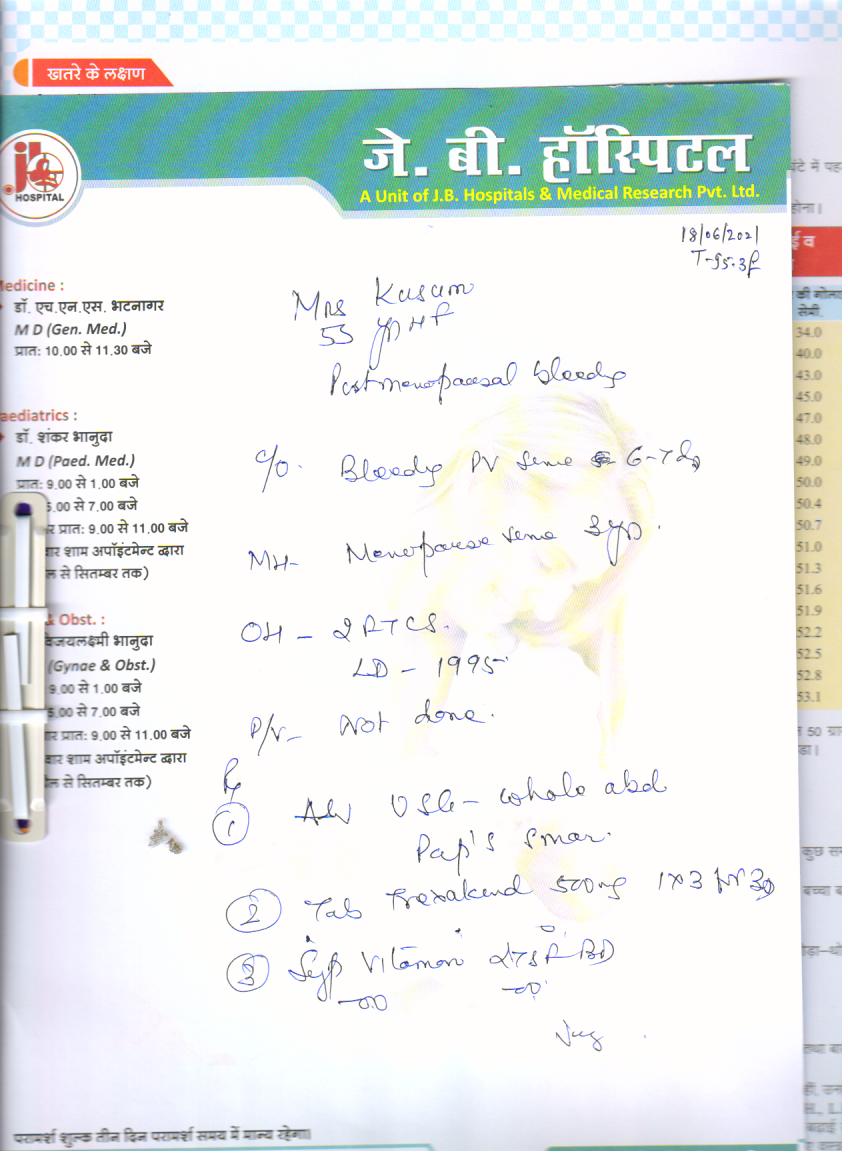 खतरे के लक्षण
जे. बी. हॉस्पिटल
A Unit of J.B. Hospitals & Medical Research Pvt. Ltd.
HOSPITAL
18/06/2021
T-95.3f
Mrs Kusum
55 yr H F
Postmenopausal bleeding
C/O. Bleeding PV since 6-7 d
MH- Menopause since 3 yrs.
OH - 2 FTCS.
LD - 1995
P/V- Not done.
Rx
1 Adv USG - whole abd
Pap's smear.
2 Tab Trexakend 500mg 1x3 for 3D
3 Syp Vitamon 2TSF BD
edicine :
डॉ. एच.एन.एस. भटनागर
M D (Gen. Med.)
प्रात: 10.00 से 11.30 बजे
aediatrics :
डॉ. शंकर भानुदा
M D (Paed. Med.)
प्रात: 9.00 से 1.00 बजे
5.00 से 7.00 बजे
र प्रात: 9.00 से 11.00 बजे
वार शाम अपॉइंटमेन्ट द्वारा
ल से सितम्बर तक)
& Obst. :
विजयलक्ष्मी भानुदा
(Gynae & Obst.)
9.00 से 1.00 बजे
5.00 से 7.00 बजे
र प्रात: 9.00 से 11.00 बजे
वार शाम अपॉइंटमेन्ट द्वारा
ल से सितम्बर तक)
परामर्श शुल्क तीन दिन परामर्श समय में मान्य रहेगा।
घंटे में पह
होना।
ई व
की गोला
सेमी.
34.0
40.0
43.0
45.0
47.0
48.0
49.0
50.0
50.4
50.7
51.0
51.3
51.6
51.9
52.2
52.5
52.8
53.1
50 ग्रा
कुछ सम
बच्चा ब
तथा बा